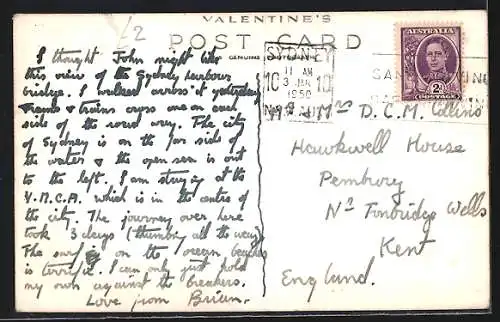 £2
VALENTINE'S
POST CARD
GENUINE
I thought John might like
this view of the Sydney harbour
bridge. I walked across it yesterday
Trams & trains cross one on each
side of the road way. The city
of Sydney is on the far side of
the water & the open sea is out
to the left. I am staying at the
Y.M.C.A. which is in the centre of
the city. The journey over here
took 3 days (thumbing all the way).
The surf on the ocean beaches
is terrific. I can only just hold
my own against the breakers.
Love from Brian.
SYDNEY
11 AM
3 JAN
1950
AUSTRALIA
2D
POSTAGE
Mr & Mrs D. C. M. Collins
Hawkwell House
Pembury
Nr Tonbridge Wells
Kent
England.